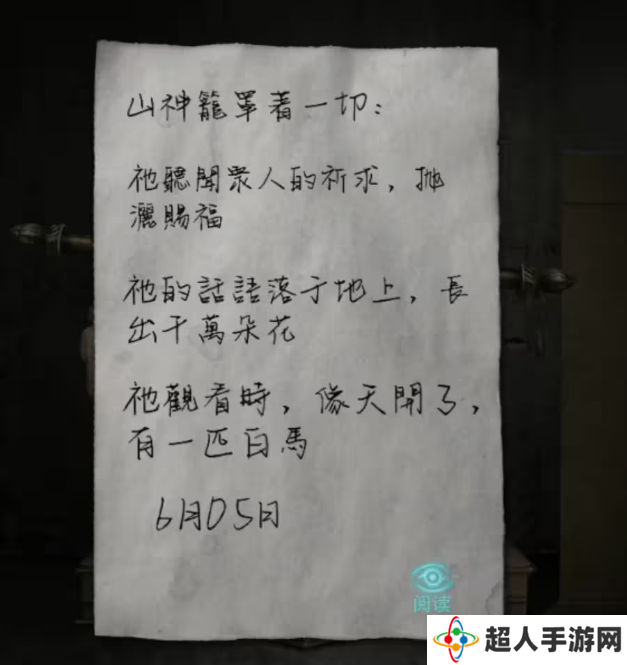 山神籠罩着一切：
祂聽聞眾人的祈求，拋
灑賜福
祂的話語落于地上，長
出千萬朵花
祂觀看時，像天開了，
有一匹白馬
6月05日
阅读
超人手游网